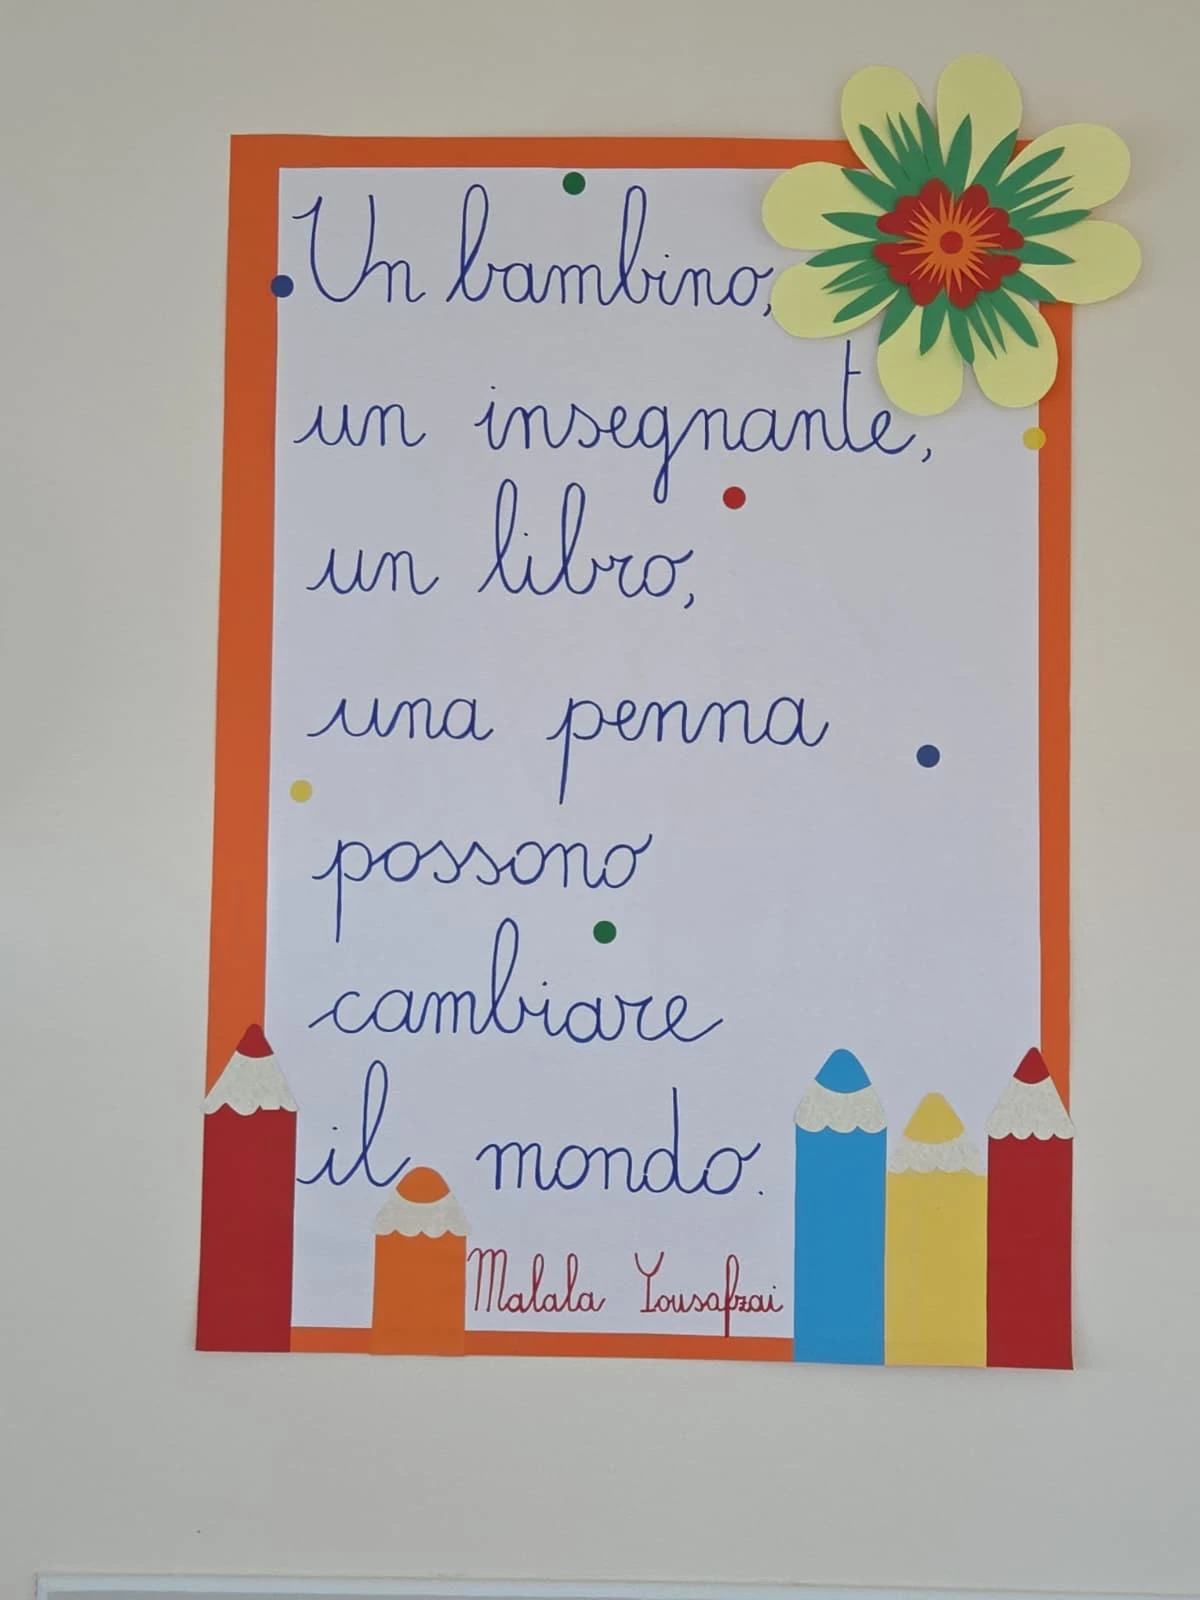 Un bambino,
un insegnante,
un libro,
una penna
possono
cambiare
il mondo.
Malala Yousafzai